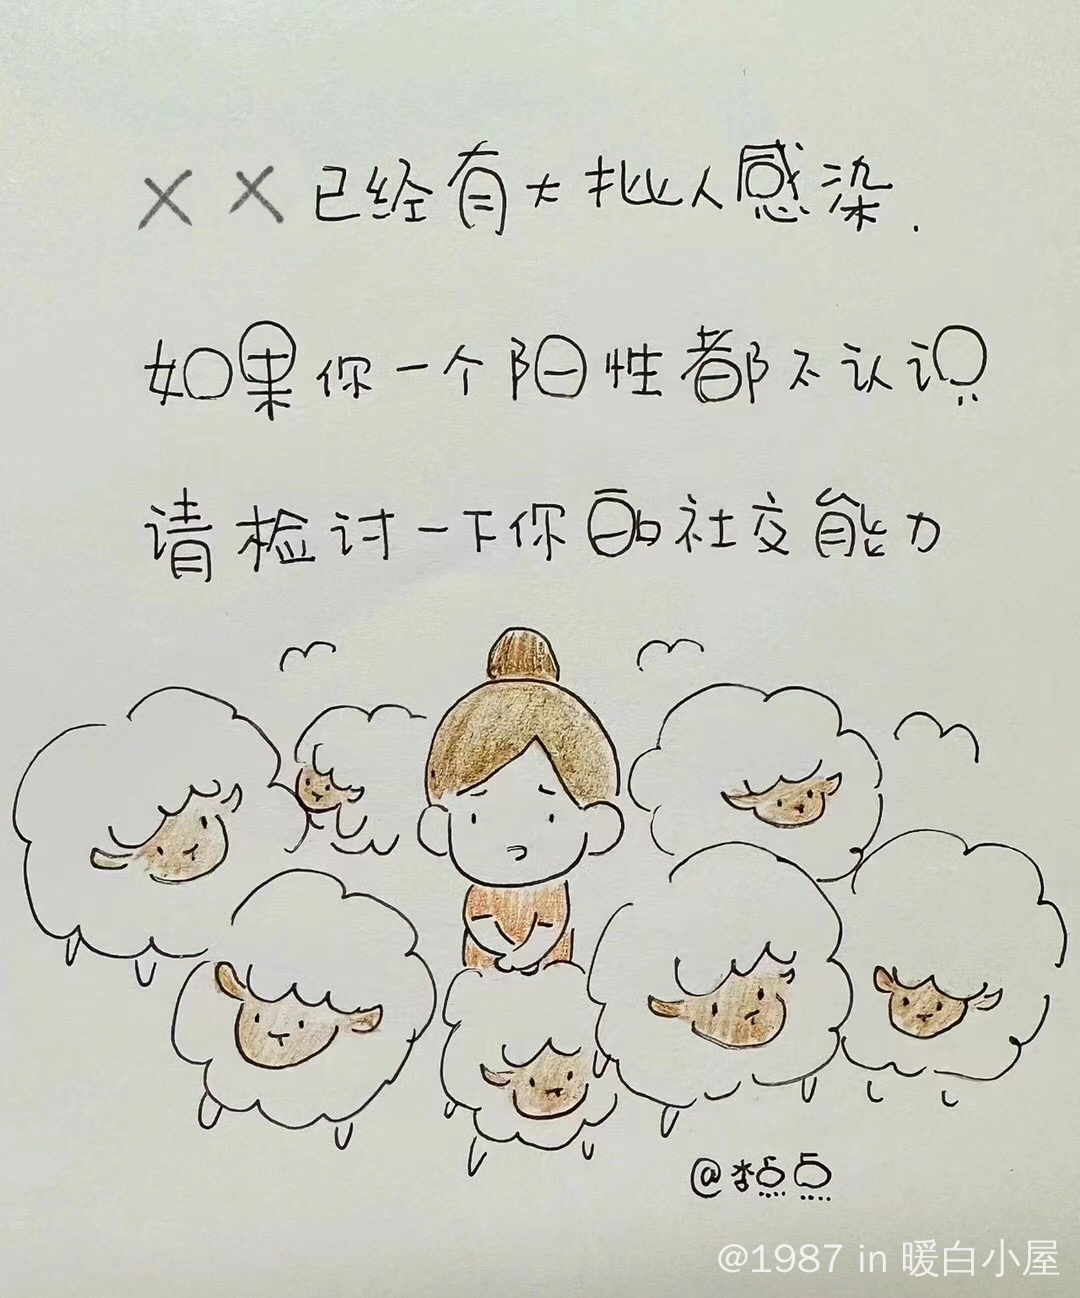 ××已经有大批人感染.
如果你一个阳性都不认识
请检讨一下你的社交能力
@李点点
@1987 in 暖白小屋